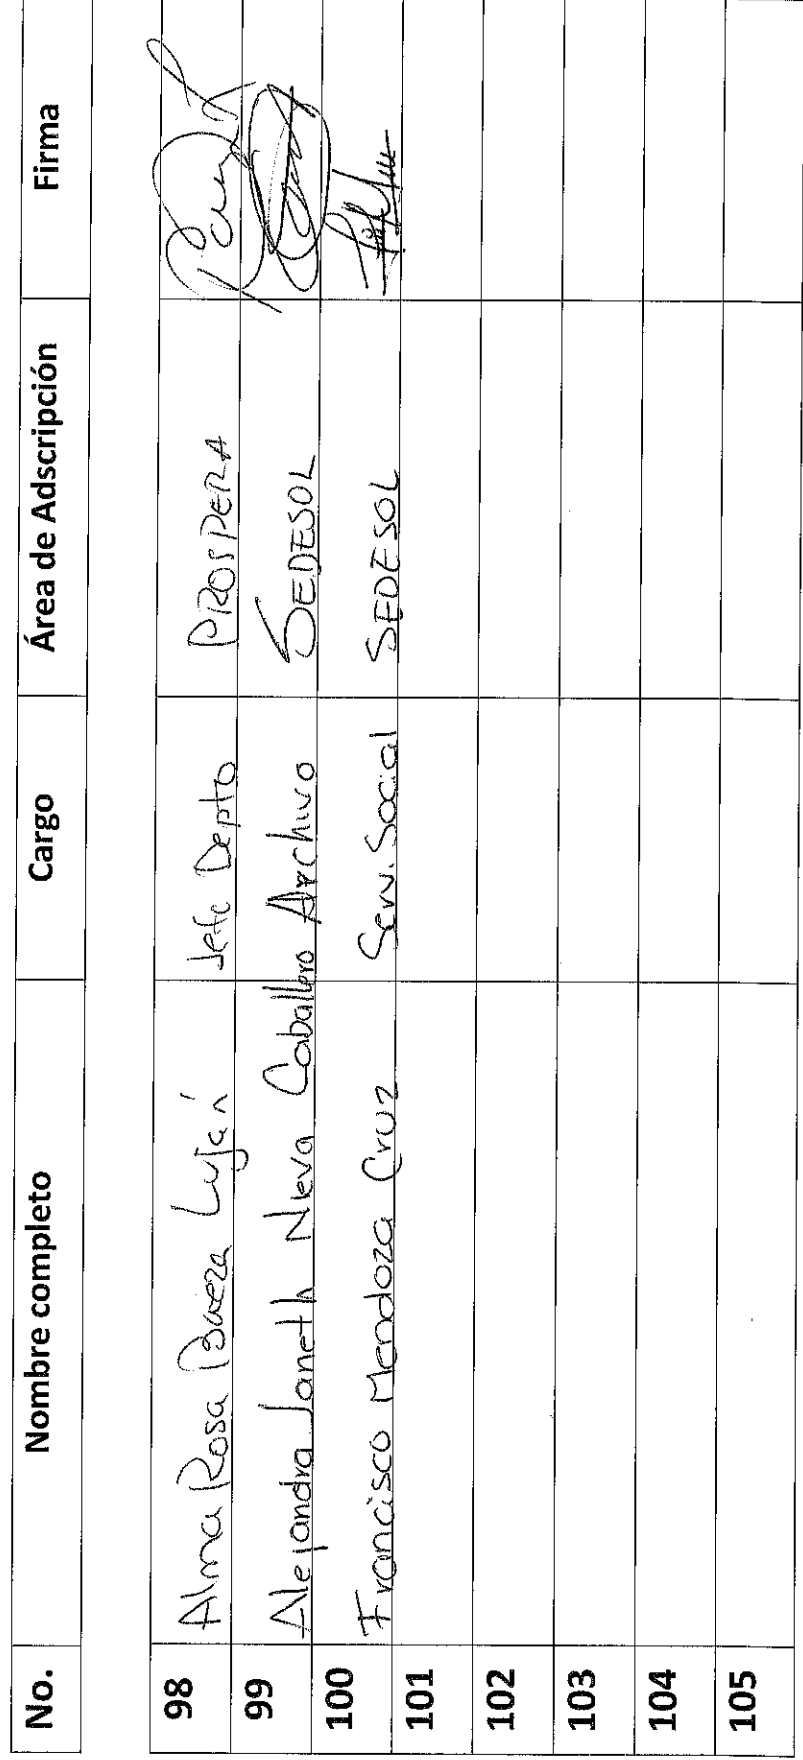 No. Nombre completo Cargo Área de Adscripción Firma
98 Alma Rosa Baeza Luján Jefe Depto PROSPERA
99 Alejandra Janeth Nieva Caballero Archivo SEDESOL
100 Francisco Mendoza Cruz Serv. Social SEDESOL
101
102
103
104
105